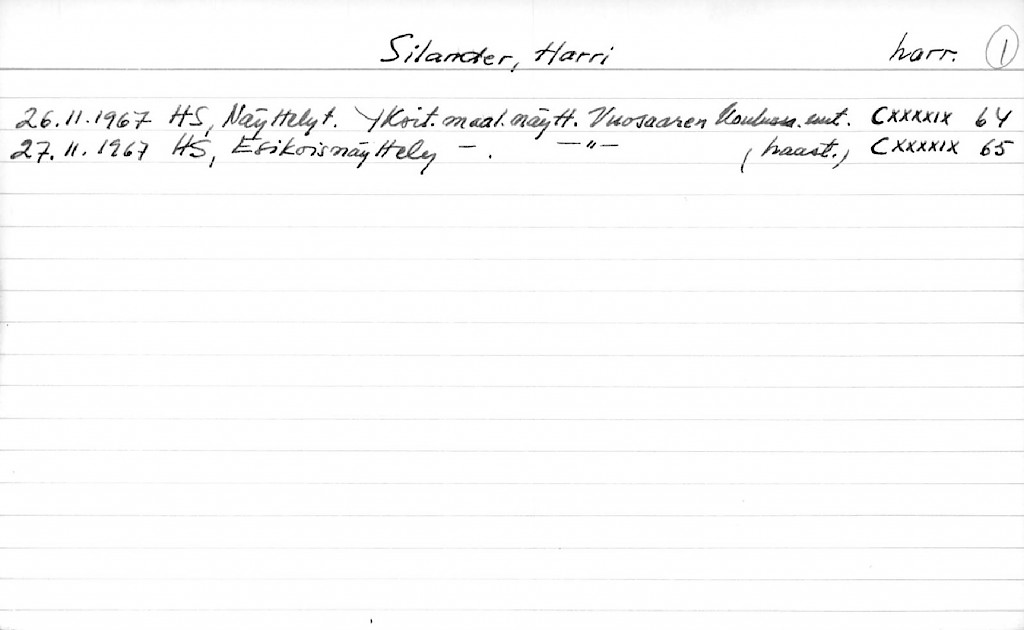 Silander, Harri harr. 1
26.11.1967 HS, Näyttelyt. Yksit. maal. näytt. Vuosaaren koulussa. CXXXXIX 64
27.11.1967 HS, Esikoisnäyttely - . -"- (haast.) CXXXXIX 65